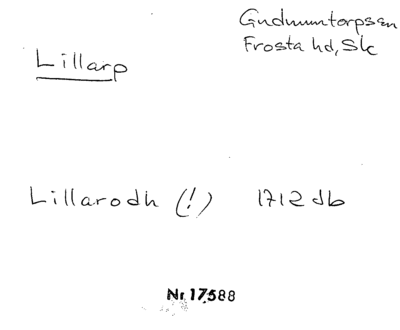 Gudmuntorpssn
Frosta hd, Sk
Lillarp
Lillarodh (!) 1712 db
Nr 17,588